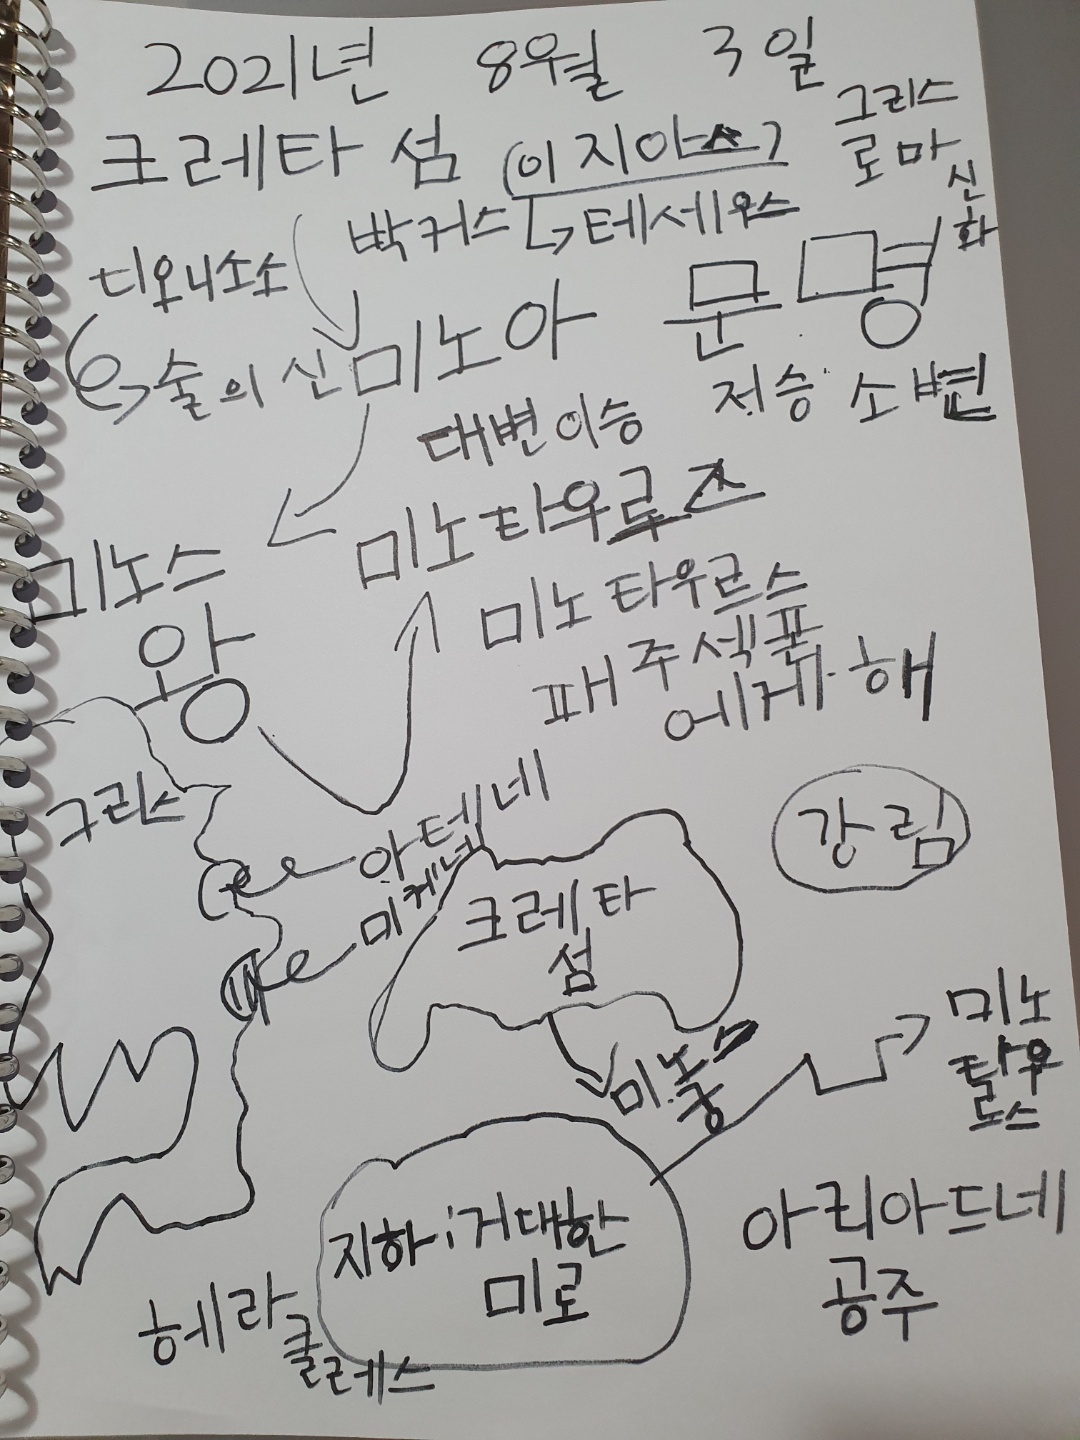 2021년 8월 3일
크레타 섬 (이지아스)
그리스
로마
신화
박커스 → 테세우스
디오니소소
→ 술의 신
미노아 문명
저승 소변
대변 이승
미노타우르즈
미노스
왕
미노타우르스
패주섹폰
에게·해
그리스
아.텐네
미케네
강림
크레타
섬
미노스
궁
미노
타우
로스
지하 거대한
미로
아리아드네
공주
헤라
클레스